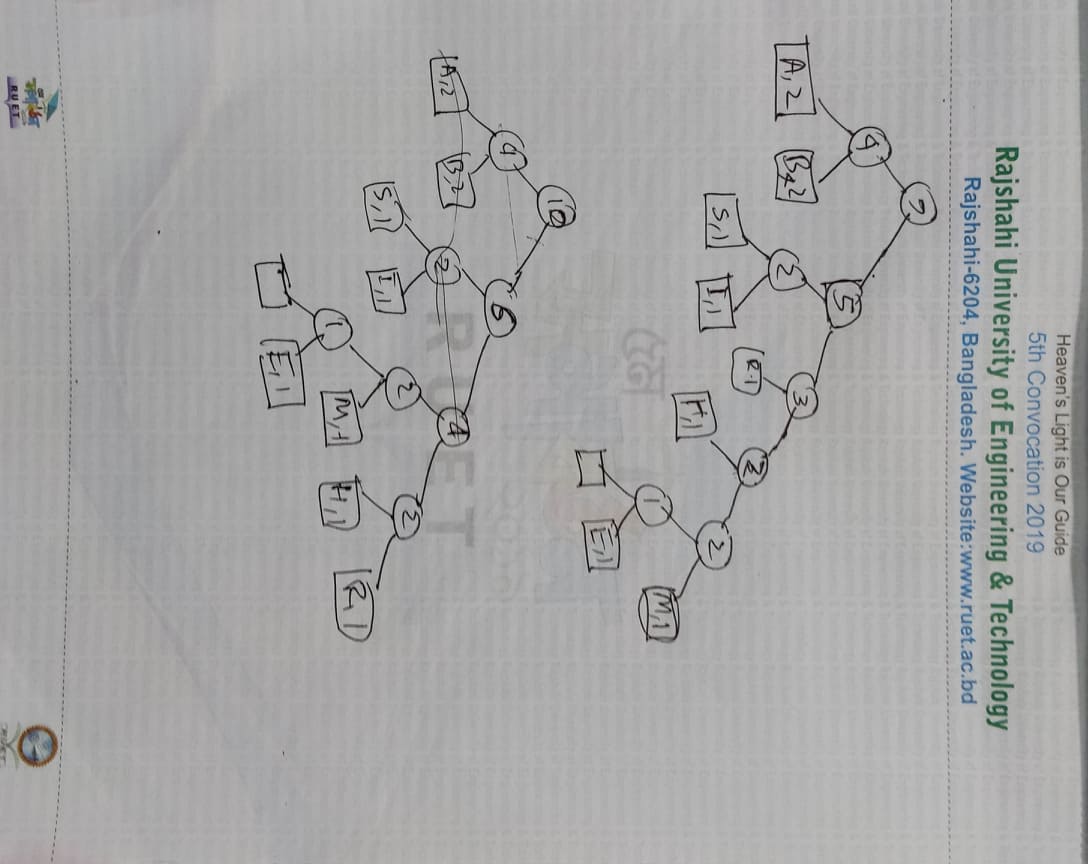 Heaven's Light is Our Guide
5th Convocation 2019
Rajshahi University of Engineering & Technology
Rajshahi-6204, Bangladesh. Website:www.ruet.ac.bd
4
5
A,2
B,2
2
3
S,1
I,1
R.1
2
H,1
2
1
M,1
E,1
৫ম
10
4
6
A,2
B,2
2
4
RUET
S,1
I,1
2
2
1
M,1
H,1
R,1
E,1
RUET